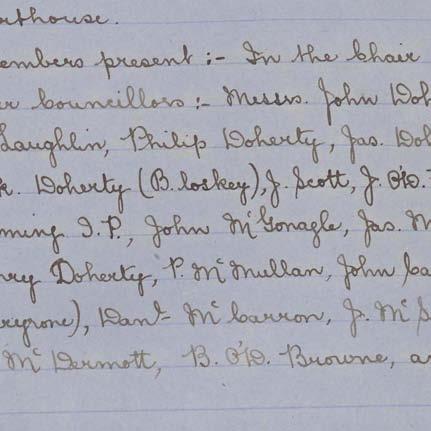 orthouse.
embers present :- In the Chair
r Councillors :- Messrs. John Doh
Laughlin, Philip Doherty, Jas. Doh
k. Doherty (B.loskey), J. Scott, J. O'D.
ming J.P., John McGonagle, Jas. M
nry Doherty, P. McMullan, John Ca
eyrone), Danl McCarron, J. Mc S
McDermott, B. O'D. Browne, a